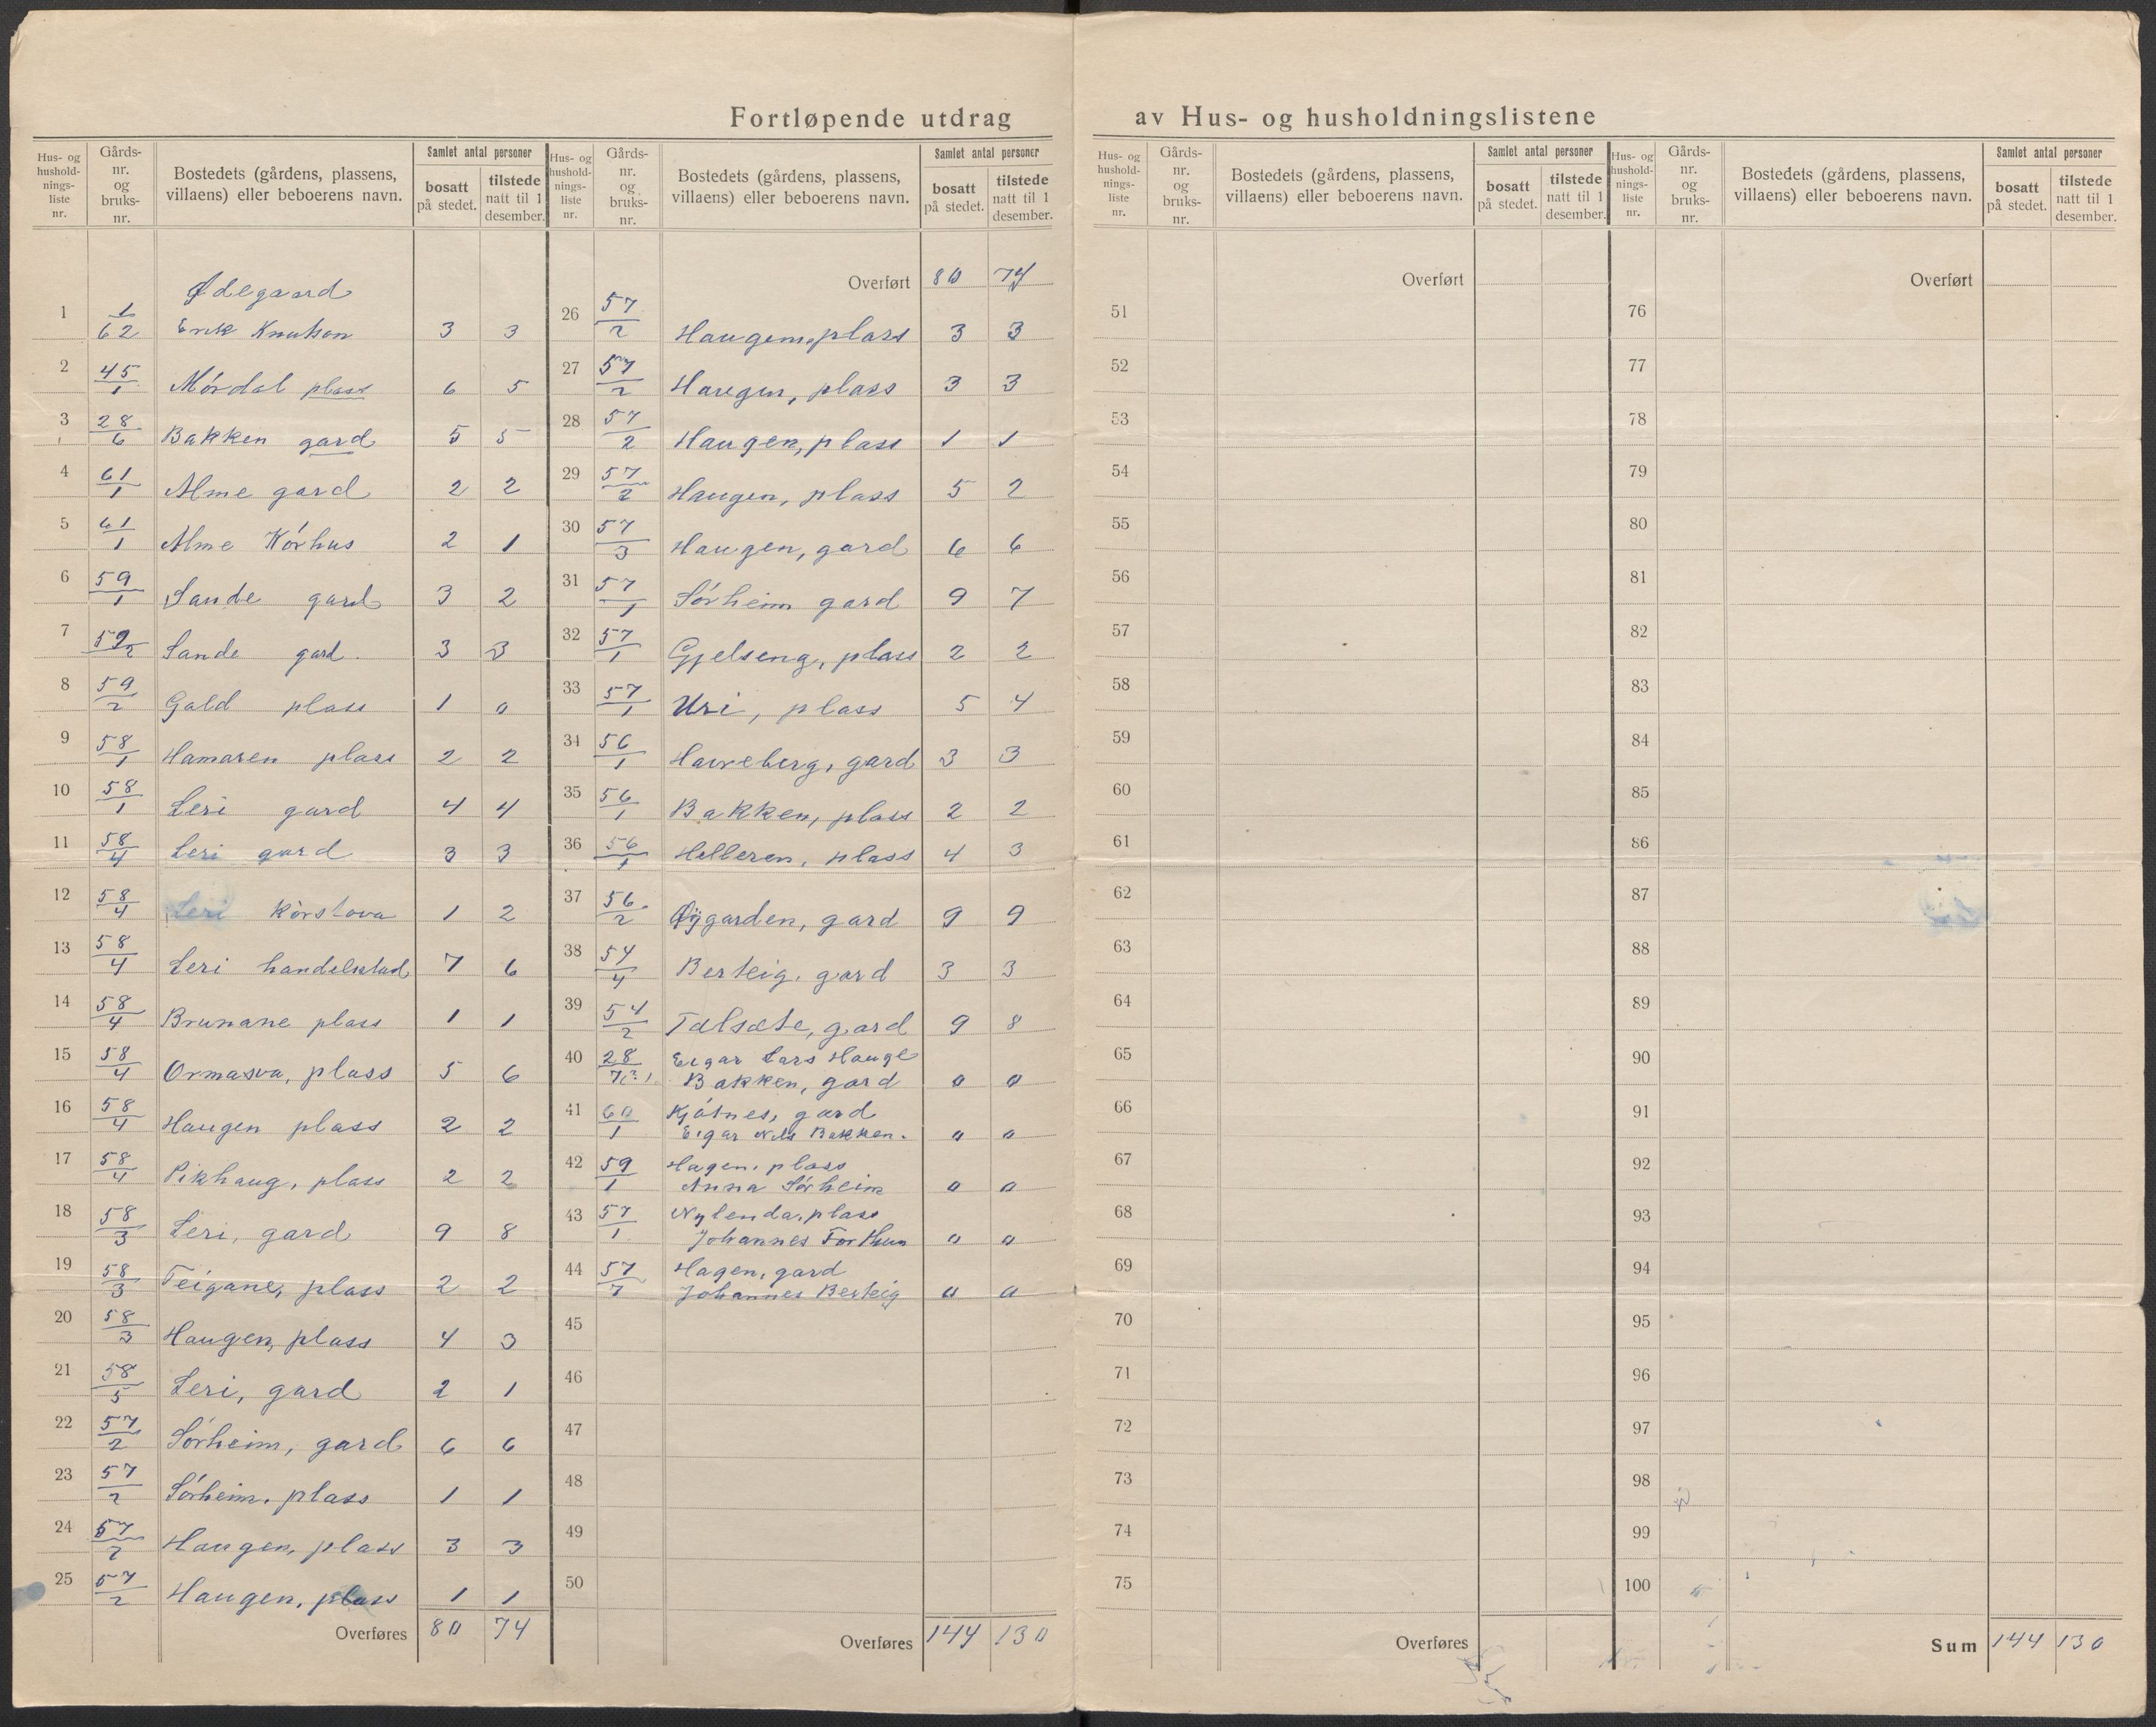 Fortløpende utdrag av Hus- og husholdningslistene
Hus- og hushold-nings-liste nr. | Gårds-nr. og bruks-nr. | Bostedets (gårdens, plassens, villaens) eller beboerens navn. | Samlet antal personer | bosatt på stedet. | tilstede natt til 1 desember.
1 1/62 Ødegaard
Erik Knutson 3 3
2 45/1 Mórdal plass 6 5
3 28/6 Bakken gard 5 5
4 61/1 Alme gard 2 2
5 61/1 Alme Kórhus 2 1
6 59/1 Sande gard 3 2
7 59/2 Sande gard 3 3
8 59/2 Gald plass 1 0
9 58/1 Hamaren plass 2 2
10 58/1 Leri gard 4 4
11 58/4 Leri gard 3 3
12 58/4 Leri Kòrstova 1 2
13 58/4 Leri handelstad 7 6
14 58/4 Brunane plass 1 1
15 58/4 Ormasva, plass 5 6
16 58/4 Haugen plass 2 2
17 58/4 Pikhaug, plass 2 2
18 58/3 Leri, gard 9 8
19 58/3 Teigane, plass 2 2
20 58/3 Haugen, plass 4 3
21 58/5 Leri, gard 2 1
22 57/2 Sórheim, gard 6 6
23 57/2 Sórheim, plass 1 1
24 57/2 Haugen, plass 3 3
25 57/2 Haugen, plass 1 1
Overføres 80 74
Hus- og hushold-nings-liste nr. | Gårds-nr. og bruks-nr. | Bostedets (gårdens, plassens, villaens) eller beboerens navn. | Samlet antal personer | bosatt på stedet. | tilstede natt til 1 desember.
Overført 80 74
26 57/2 Haugen, plass 3 3
27 57/2 Haugen, plass 3 3
28 57/2 Haugen, plass 1 1
29 57/2 Haugen, plass 5 2
30 57/3 Haugen, gard 6 6
31 57/1 Sórheim gard 9 7
32 57/1 Gjelseng, plass 2 2
33 57/1 Uri, plass 5 4
34 56/1 Havreberg, gard 3 3
35 56/1 Bakken, plass 2 2
36 56/1 Helleren, plass 4 3
37 56/2 Øygarden, gard 9 9
38 54/4 Berteig, gard 3 3
39 54/2 Talsæte, gard 9 8
40 28/7(?) Eigar Lars Hauge
Bakken, gard 0 0
41 60/1 Kjótnes, gard
Eigar Nils Bakken. 0 0
42 59/1 Hagen, plass
Anna Sórheim 0 0
43 57/1 Nylenda, plass
Johannes Forthun 0 0
44 57/7 Hagen, gard
Johannes Berteig 0 0
45
46
47
48
49
50
Overføres 144 130
Hus- og hushold-nings-liste nr. | Gårds-nr. og bruks-nr. | Bostedets (gårdens, plassens, villaens) eller beboerens navn. | Samlet antal personer | bosatt på stedet. | tilstede natt til 1 desember.
Overført
51
52
53
54
55
56
57
58
59
60
61
62
63
64
65
66
67
68
69
70
71
72
73
74
75
Overføres
Hus- og hushold-nings-liste nr. | Gårds-nr. og bruks-nr. | Bostedets (gårdens, plassens, villaens) eller beboerens navn. | Samlet antal personer | bosatt på stedet. | tilstede natt til 1 desember.
Overført
76
77
78
79
80
81
82
83
84
85
86
87
88
89
90
91
92
93
94
95
96
97
98
99
100
Sum 144 130